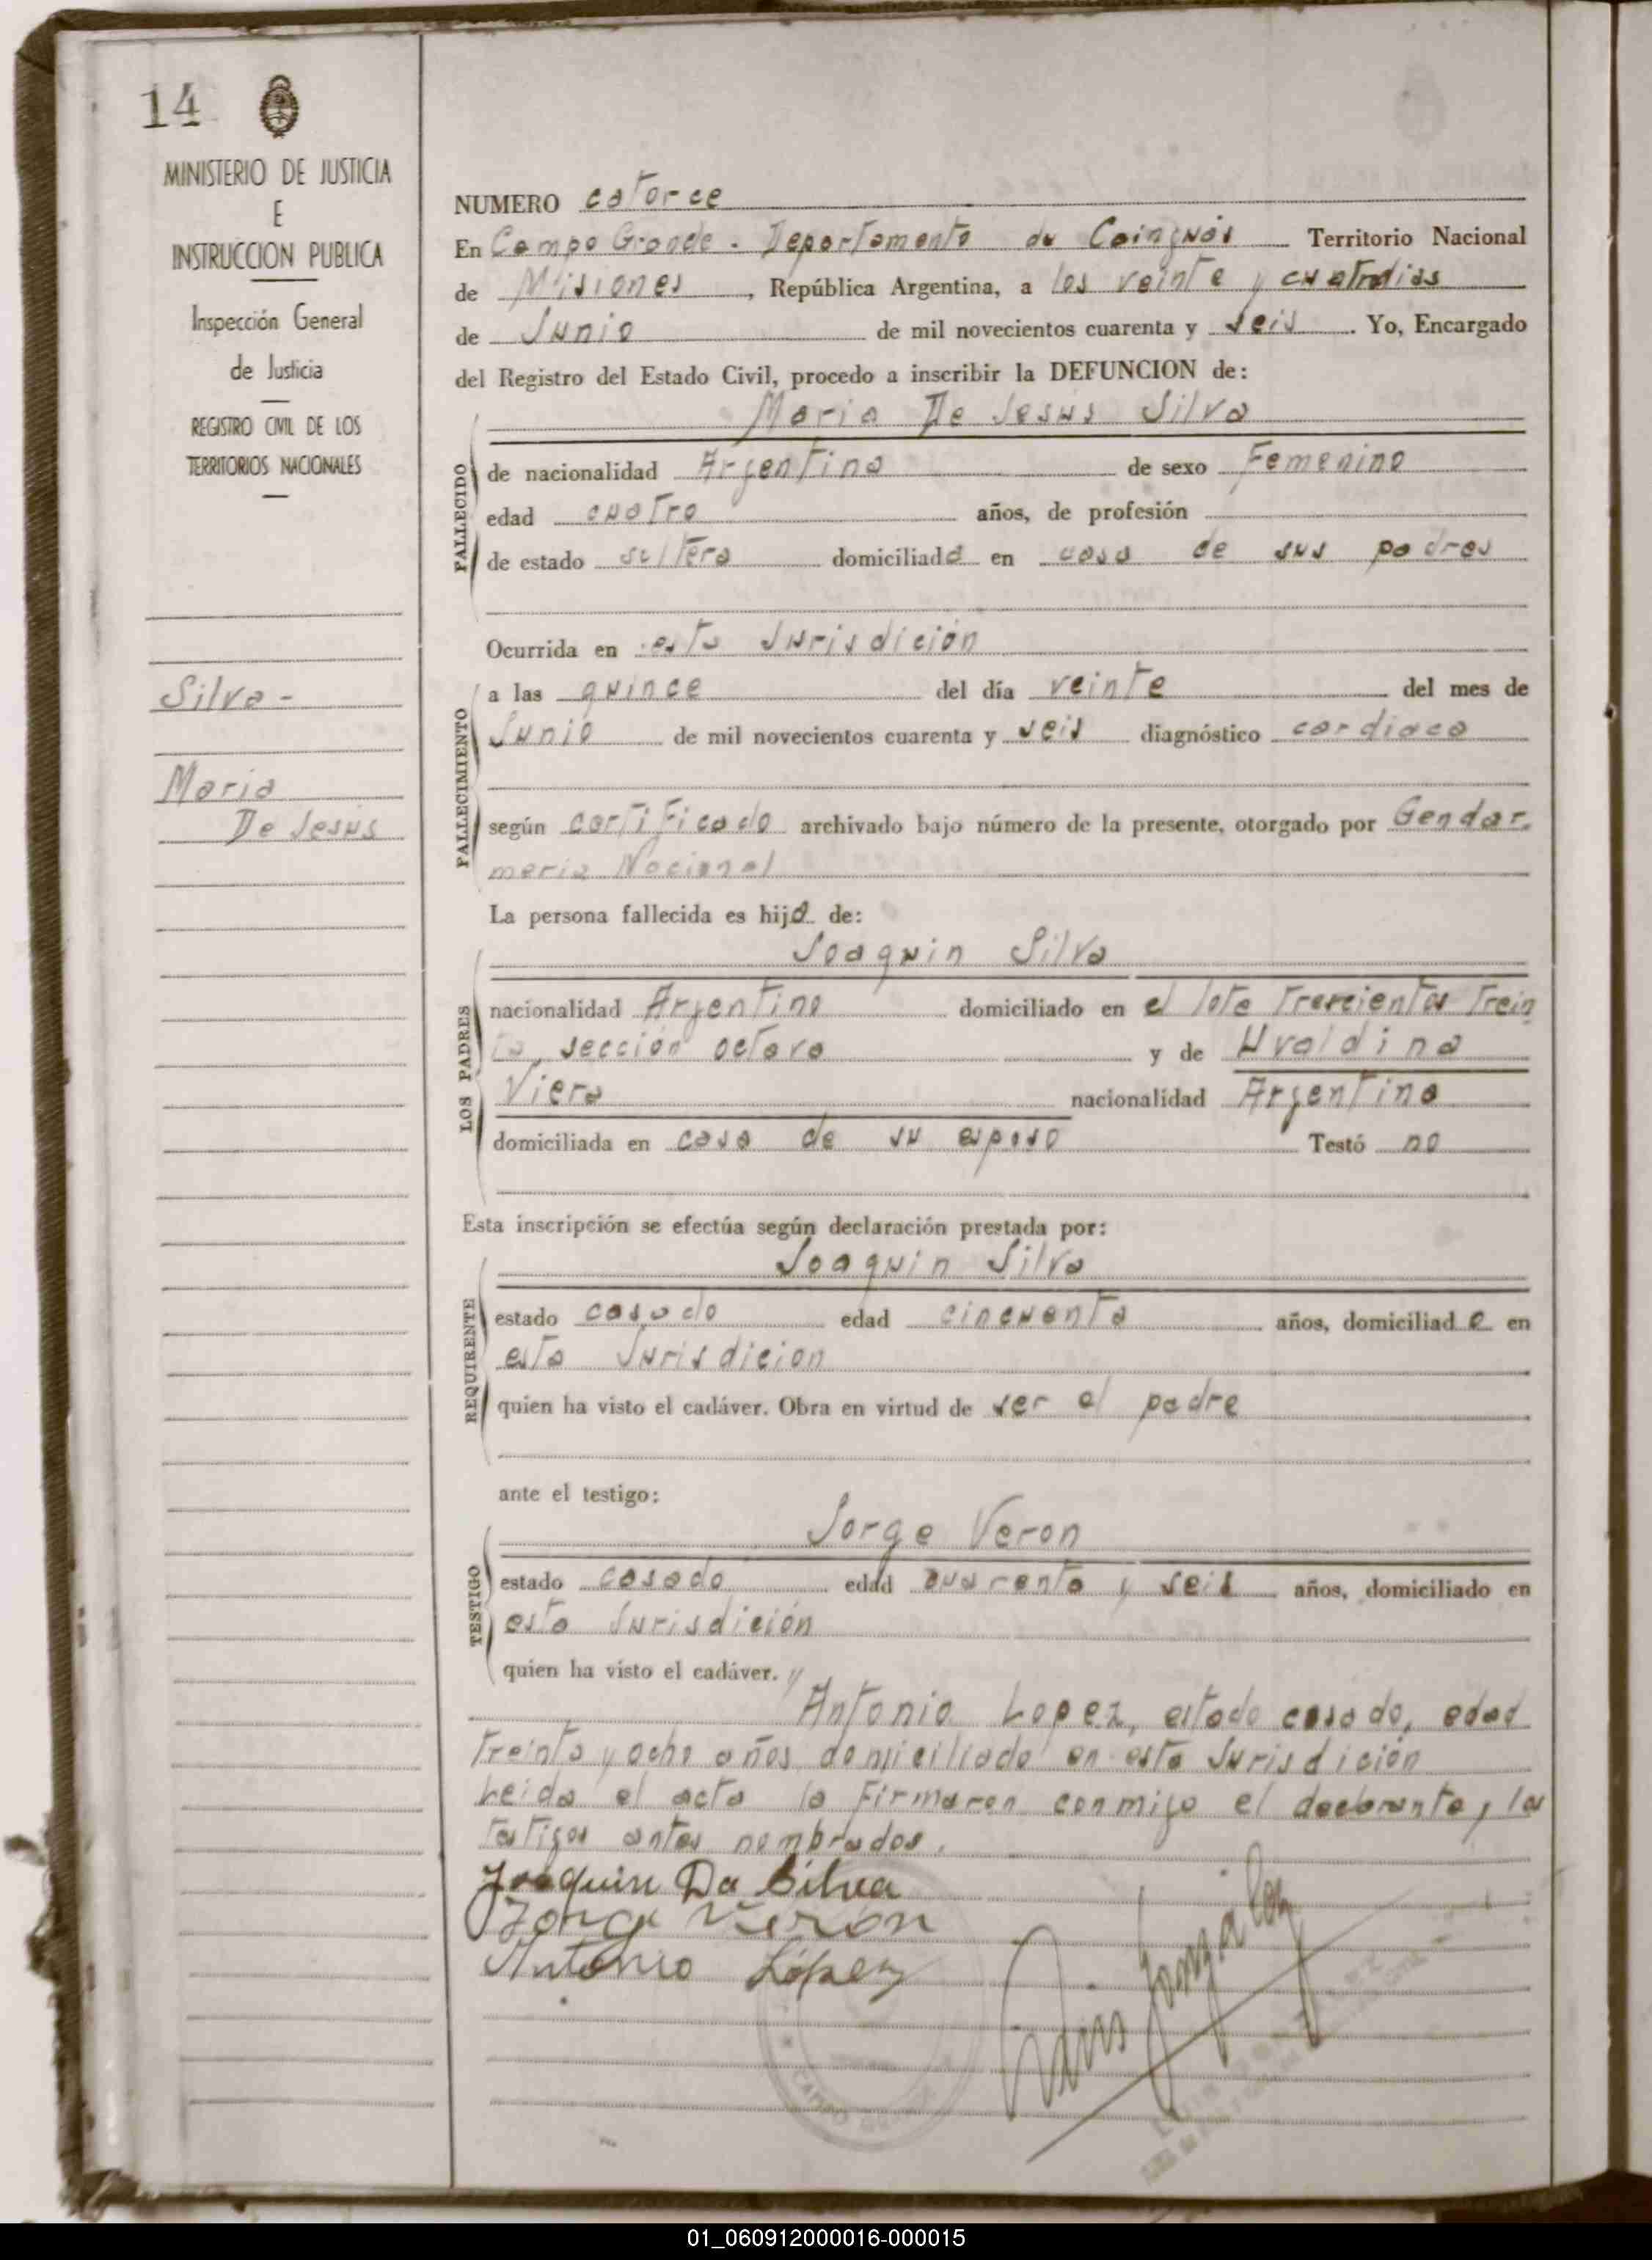 14
MINISTERIO DE JUSTICIA
E
INSTRUCCION PUBLICA
Inspección General
de Justicia
REGISTRO CIVIL DE LOS
TERRITORIOS NACIONALES
Silva-
Maria
De Jesus
NUMERO catorce
En Campo Grande. Departamento de Cainguás Territorio Nacional
de Misiones, República Argentina, a los veinte y cuatro dias
de Junio de mil novecientos cuarenta y seis. Yo, Encargado
del Registro del Estado Civil, procedo a inscribir la DEFUNCION de:
Maria De Jesus Silva
FALLECIDO
de nacionalidad Argentina de sexo Femenino
edad cuatro años, de profesión
de estado soltera domiciliada en casa de sus padres
Ocurrida en esta Jurisdición
FALLECIMIENTO
a las quince del día veinte del mes de
Junio de mil novecientos cuarenta y seis diagnóstico cardiaco
según certificado archivado bajo número de la presente, otorgado por Gendar-
meria Nacional
La persona fallecida es hija de:
LOS PADRES
Joaquin Silva
nacionalidad Argentino domiciliado en el lote Trescientos Trein
ta, sección octava y de Uvaldina
Viera nacionalidad Argentina
domiciliada en casa de su esposo Testó no
Esta inscripción se efectúa según declaración prestada por:
REQUIRENTE
Joaquin Silva
estado casado edad cincuenta años, domiciliado en
esta Jurisdicion
quien ha visto el cadáver. Obra en virtud de ser el padre
ante el testigo:
TESTIGO
Jorge Veron
estado casado edad cuarenta y seis años, domiciliado en
esta Jurisdición
quien ha visto el cadáver. y
Antonio Lopez, estado casado, edad
Treinta y ocho años, domiciliado en esta Jurisdición
Leida el acta la Firmaron conmigo el declarante, los
Testigos antes nombrados.
Joaquin Da Silva
Jorge Verón
Antonio López
Luis González
CAMPO GRANDE
LUIS GONZALEZ
01_060912000016-000015